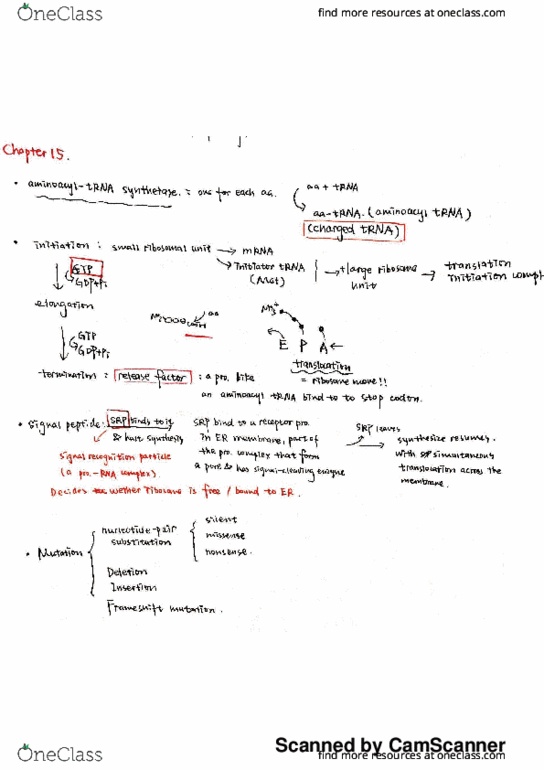 OneClass
find more resources at oneclass.com
Chapter 15.
• aminoacyl-tRNA synthetase. : one for each aa.
aa + tRNA
aa-tRNA. (aminoacyl tRNA)
(charged tRNA)
• initiation : small ribosomal unit → mRNA
→ initiator tRNA
(Met)
→ + large ribosome
unit
→ translation
initiation compl
GTP
GDP+Pi
elongation
GTP
GDP+Pi
aa
NH3+
E P A ←
translocation
= ribosome move!!
-termination : release factor : a pro. like
an aminoacyl tRNA bind to to stop codon.
• Signal peptide : SRP binds to it
& halt synthesis
signal recognition particle
(a pro.-RNA complex)
SRP bind to a receptor pro.
in ER membrane, part of
the pro. complex that form
a pore & has signal-cleaving enzyme
SRP leaves
synthesize resumes.
with simultaneous
translocation across the
membrane.
Decides wether ribosome is free / bound to ER.
• Mutation
nucleotide-pair
substitution
silent
missense
nonsense.
Deletion
Insertion
Frameshift mutation.
Scanned by CamScanner
OneClass
find more resources at oneclass.com